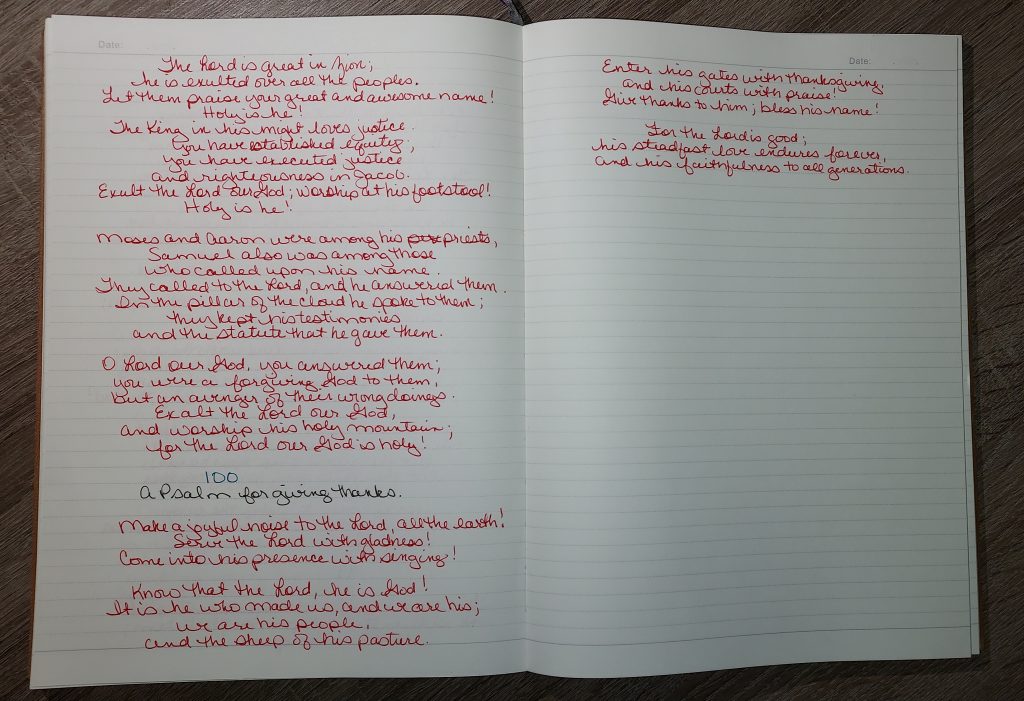 Date:
The Lord is great in Zion;
he is exulted over all the peoples.
Let them praise your great and awesome name!
Holy is he!
The King in his might loves justice.
You have established equity;
you have executed justice
and righteousness in Jacob.
Exalt the Lord our God; worship at his footstool!
Holy is he!
Moses and Aaron were among his priests,
Samuel also was among those
who called upon his name.
They called to the Lord, and he answered them.
In the pillar of the cloud he spoke to them;
they kept his testimonies
and the statute that he gave them.
O Lord our God, you answered them;
you were a forgiving God to them,
but an avenger of their wrongdoings.
Exalt the Lord our God,
and worship his holy mountain;
for the Lord our God is holy!
100
A Psalm for giving thanks.
Make a joyful noise to the Lord, all the earth!
Serve the Lord with gladness!
Come into his presence with singing!
Know that the Lord, he is God!
It is he who made us, and we are his;
we are his people,
and the sheep of his pasture.
Date:
Enter his gates with thanksgiving,
and his courts with praise!
Give thanks to him; bless his name!
For the Lord is good;
his steadfast love endures forever,
and his faithfulness to all generations.